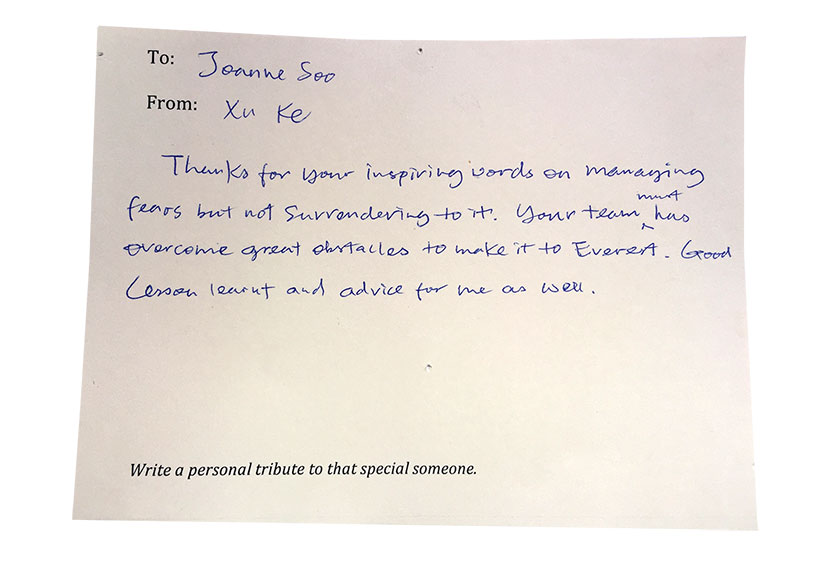 To: Joanne Soo
From: Xu Ke
Thanks for your inspiring words on managing
fears but not surrendering to it. Your team must has
overcome great obstacles to make it to Everest. Good
Lesson learnt and advice for me as well.
Write a personal tribute to that special someone.